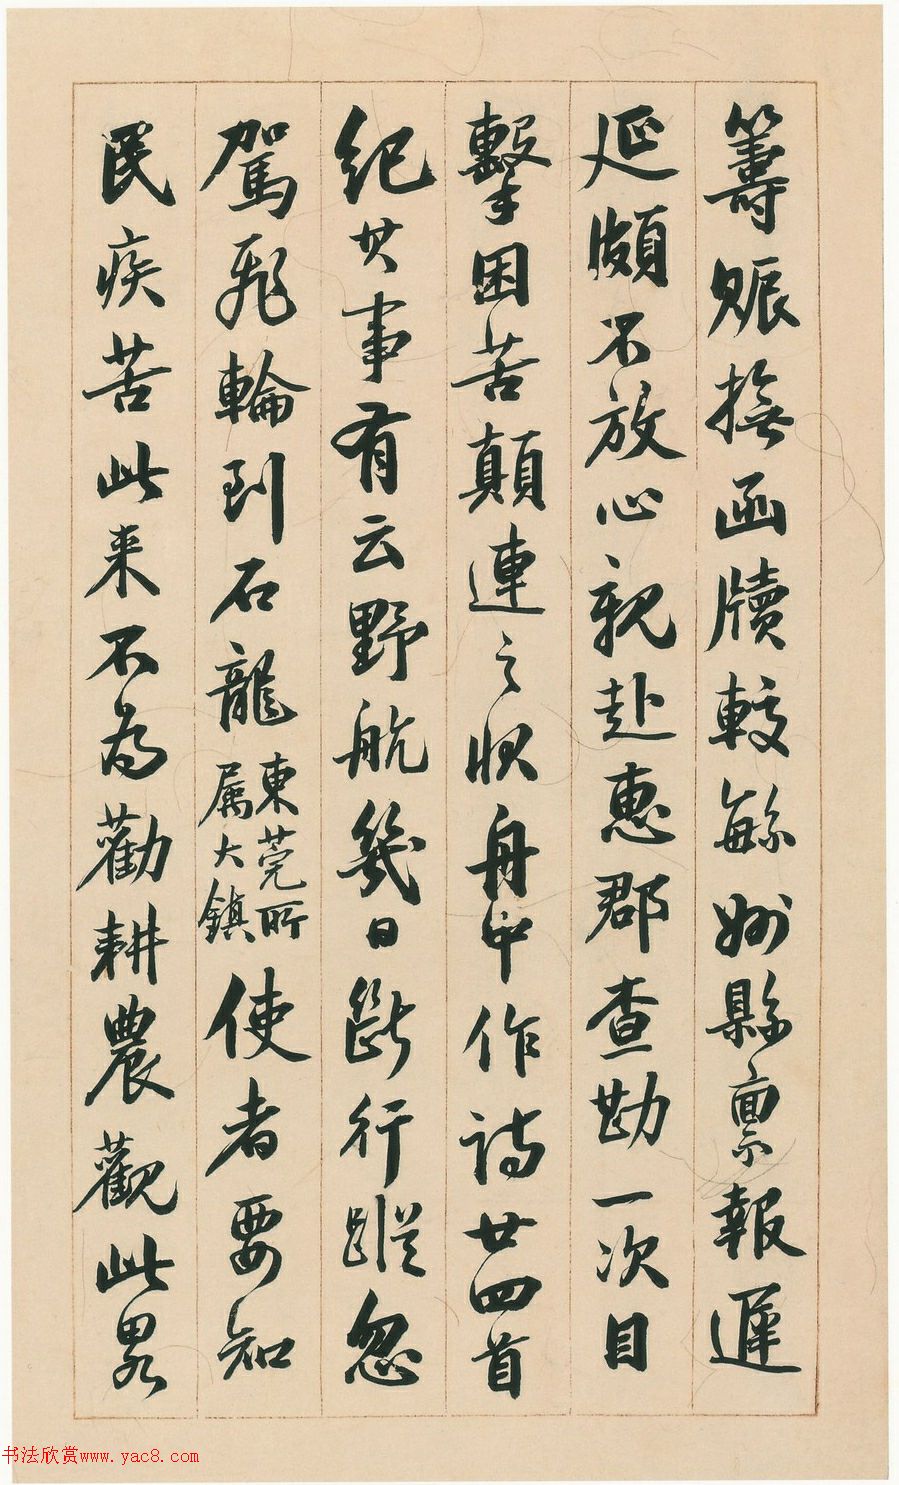 籌賑撫函牘較繇州縣稟報遲
延頗不放心親赴惠郡查勘一次目
擊困苦顛連之狀舟中作詩廿四首
紀其事有云野航幾日斷行蹤忽
駕飛輪到石龍東莞所屬大鎮使者要知
民疾苦此来不為勸耕農觀此略
书法欣赏www.yac8.com